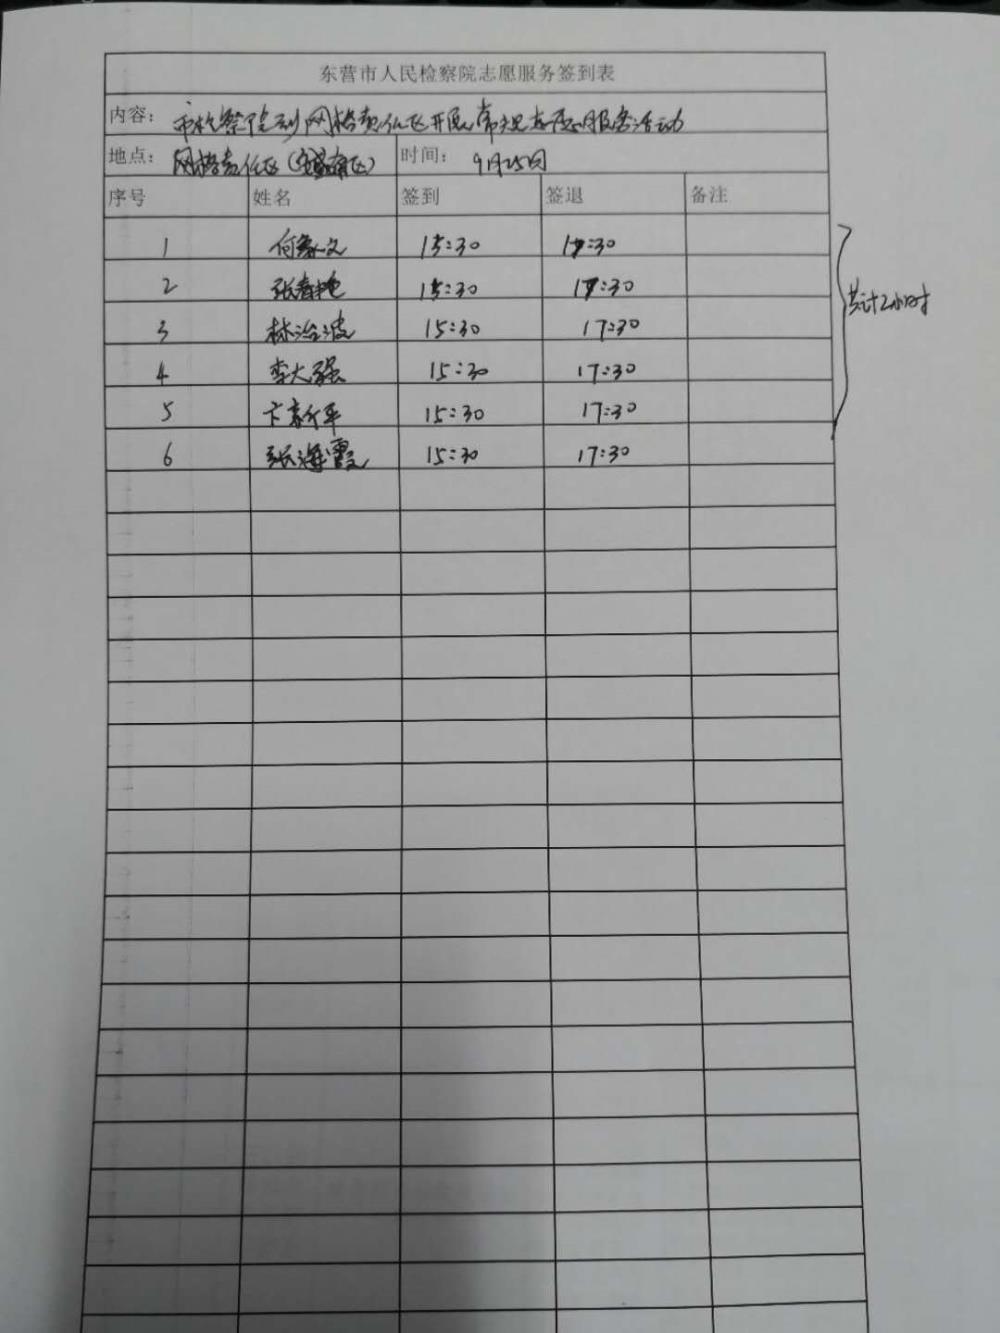 东营市人民检察院志愿服务签到表
内容：市检察院到网格责任区开展常规志愿服务活动
地点：网格责任区 时间：9月25日
序号 姓名 签到 签退 备注
1 何 文 15:30 17:30
2 张春艳 15:30 17:30
3 林治波 15:30 17:30
4 李大强 15:30 17:30
5 卞 平 15:30 17:30
6 张海霞 15:30 17:30
共计2小时